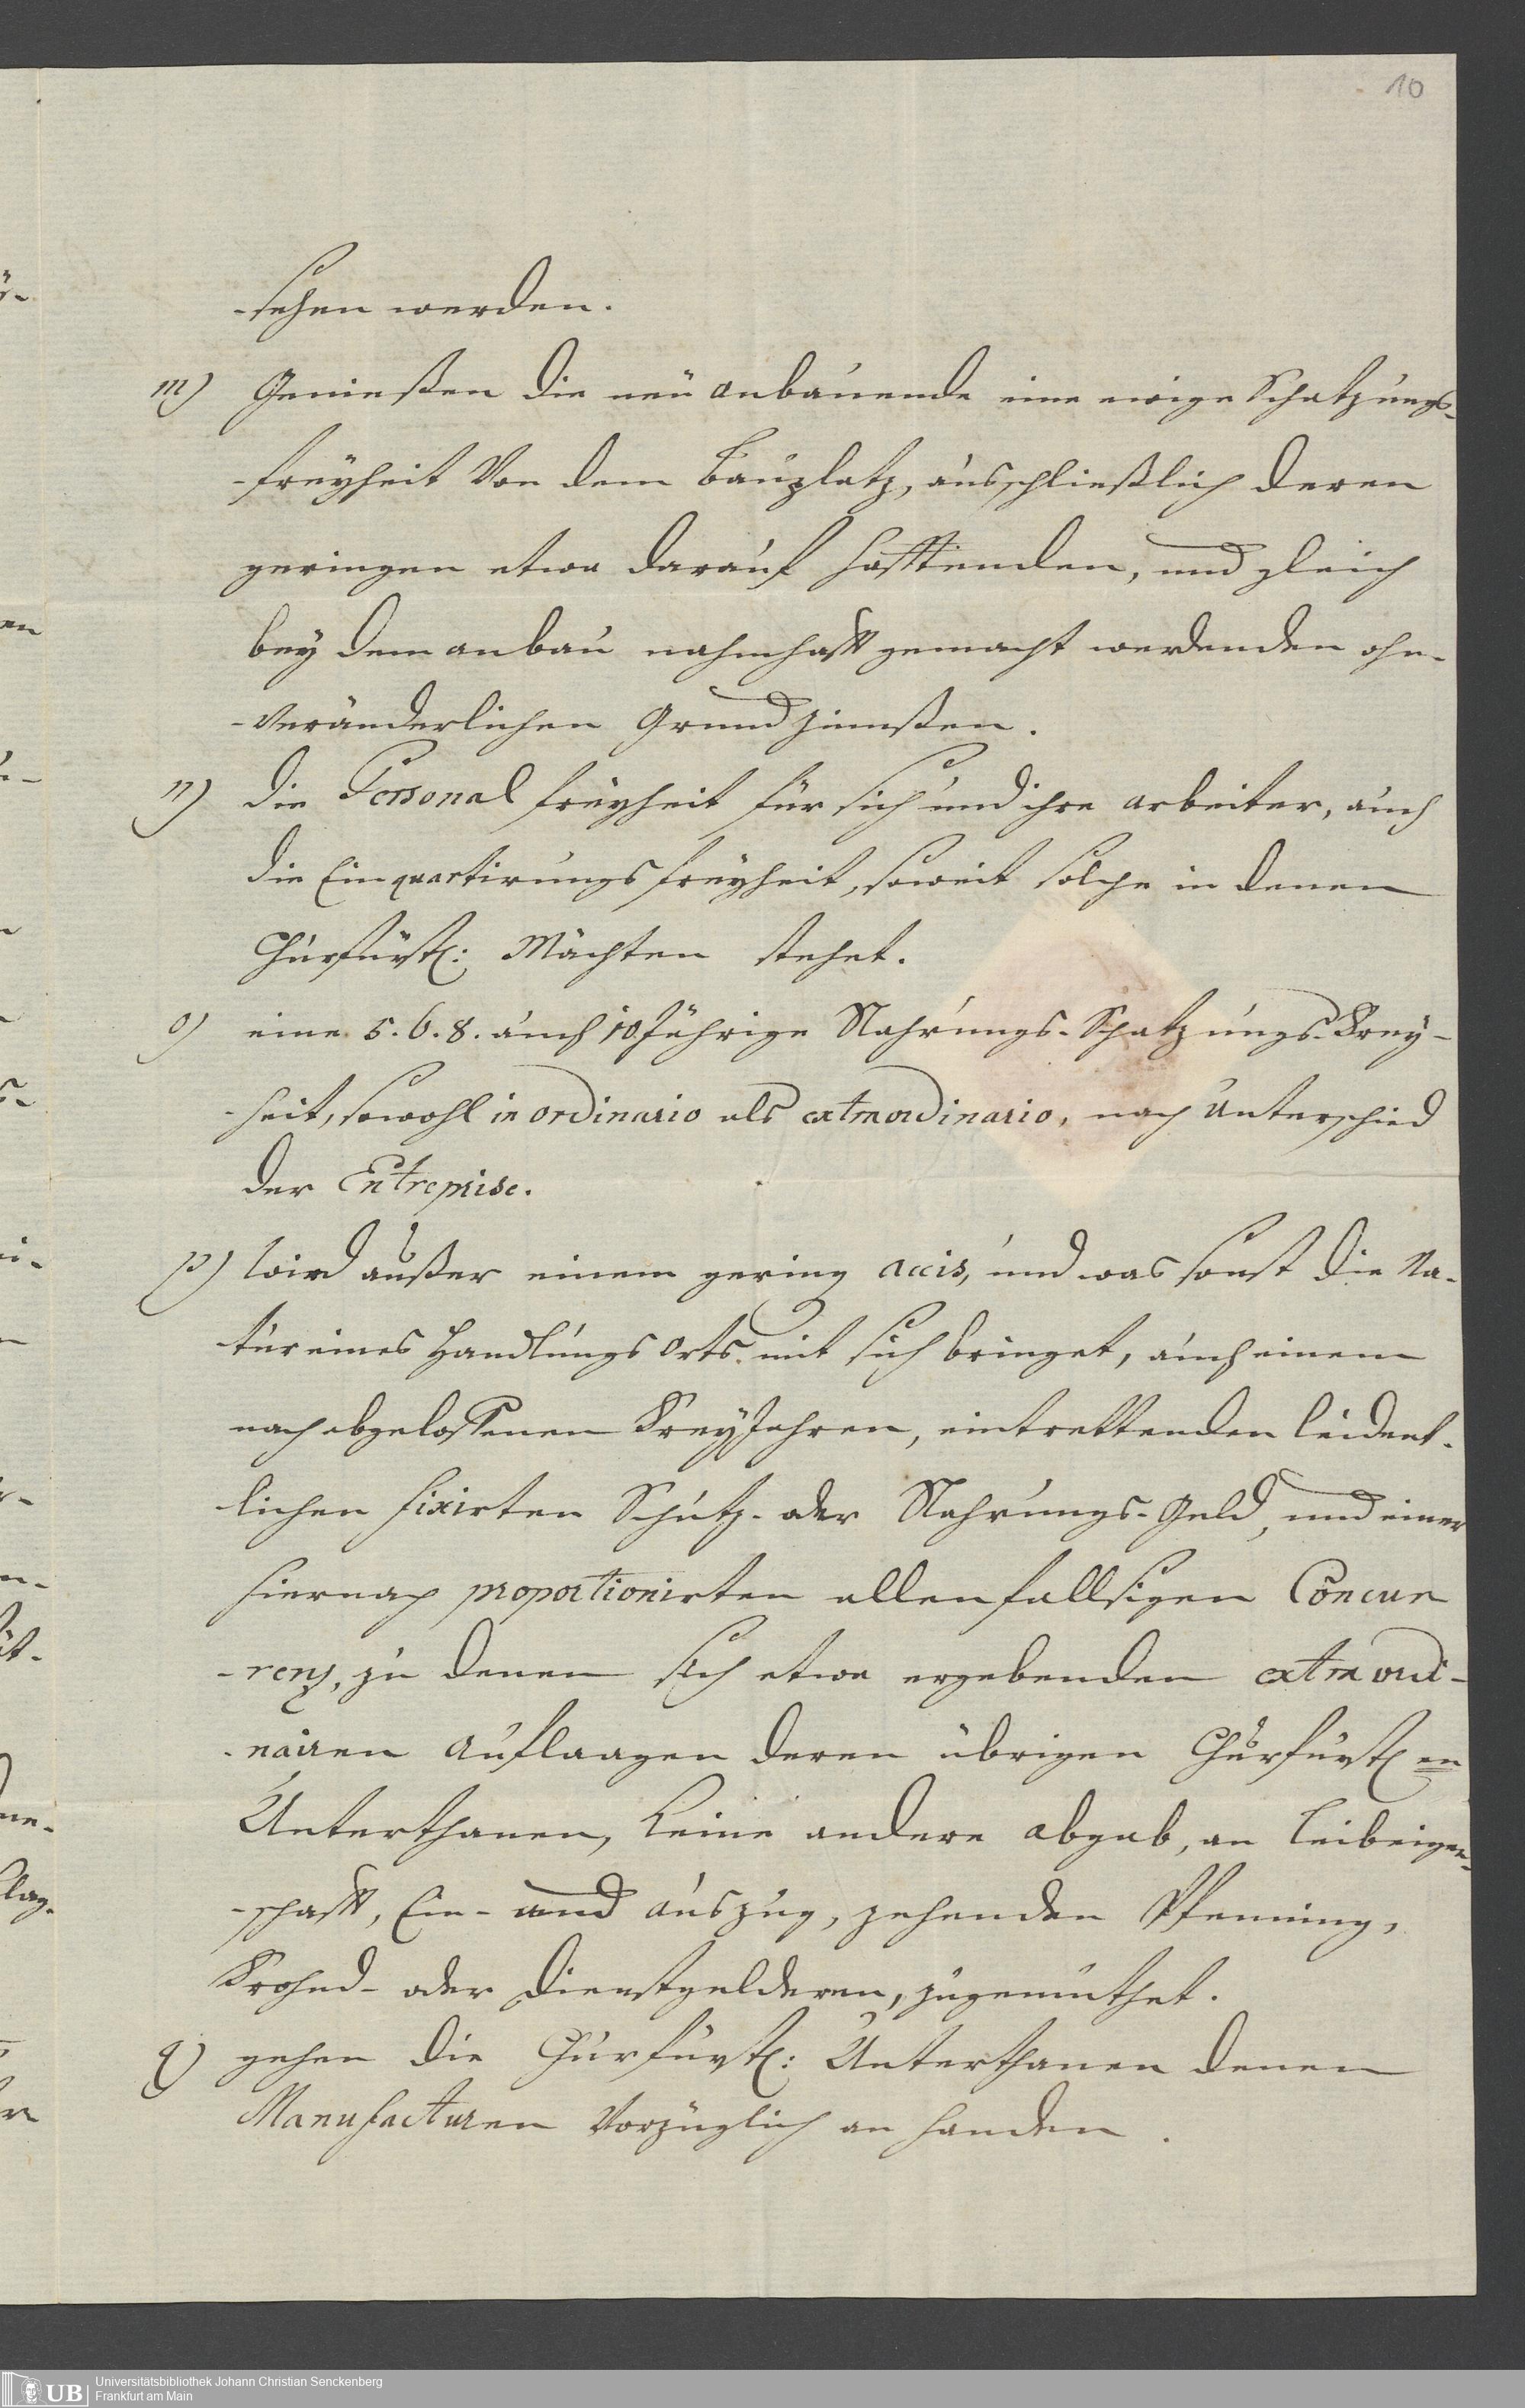 10
-sehen werden.
m) Genießen die neü anbauende eine ewige Schatzungs-
-freyheit Von dem Bauplatz, ausschließlich deren
geringen etwa darauf hafftenden, und gleich
bey dem anbau nahmhafft gemacht werdenden ohn-
-veränderlichen Grund zinnßen.
n) die Personal freyheit für sich und ihre arbeiter, auch
die Einquartirungs freyheit, soweit solche in denen
Churfürstl: Mächten stehet.
o) eine 5. 6. 8. auch 10 Jährige Nahrungs-Schatzungs-Frey-
-heit, sowohl in ordinario als extraordinario, nach Unterschied
der Entreprise.
p) wird außer einem gering accis, und was sonst die Na-
-tur eines Handlungs Orts mit sich bringet, auch einem
nach abgeloffenen FreyJahren, eintrettenden leident-
-lichen fixirten Schutz- oder Nahrungs-Geld, und einer
hiernach proportionirten allenfallsigen Concur
-renz, zu denen sich etwa ergebenden extraordi-
-nairen Auflaagen deren übrigen Churfürstl en
Unterthanen, keine andere abgab, an Leibeigen-
-schafft, Ein- und auszug, zehenden Pfenning,
Frohnd- oder Dienstgelderen, zugemuthet.
q) gehen die Churfürstl: Unterthanen denen
Manufacturen Vorzüglich an Handen.
UB Universitätsbibliothek Johann Christian Senckenberg
Frankfurt am Main